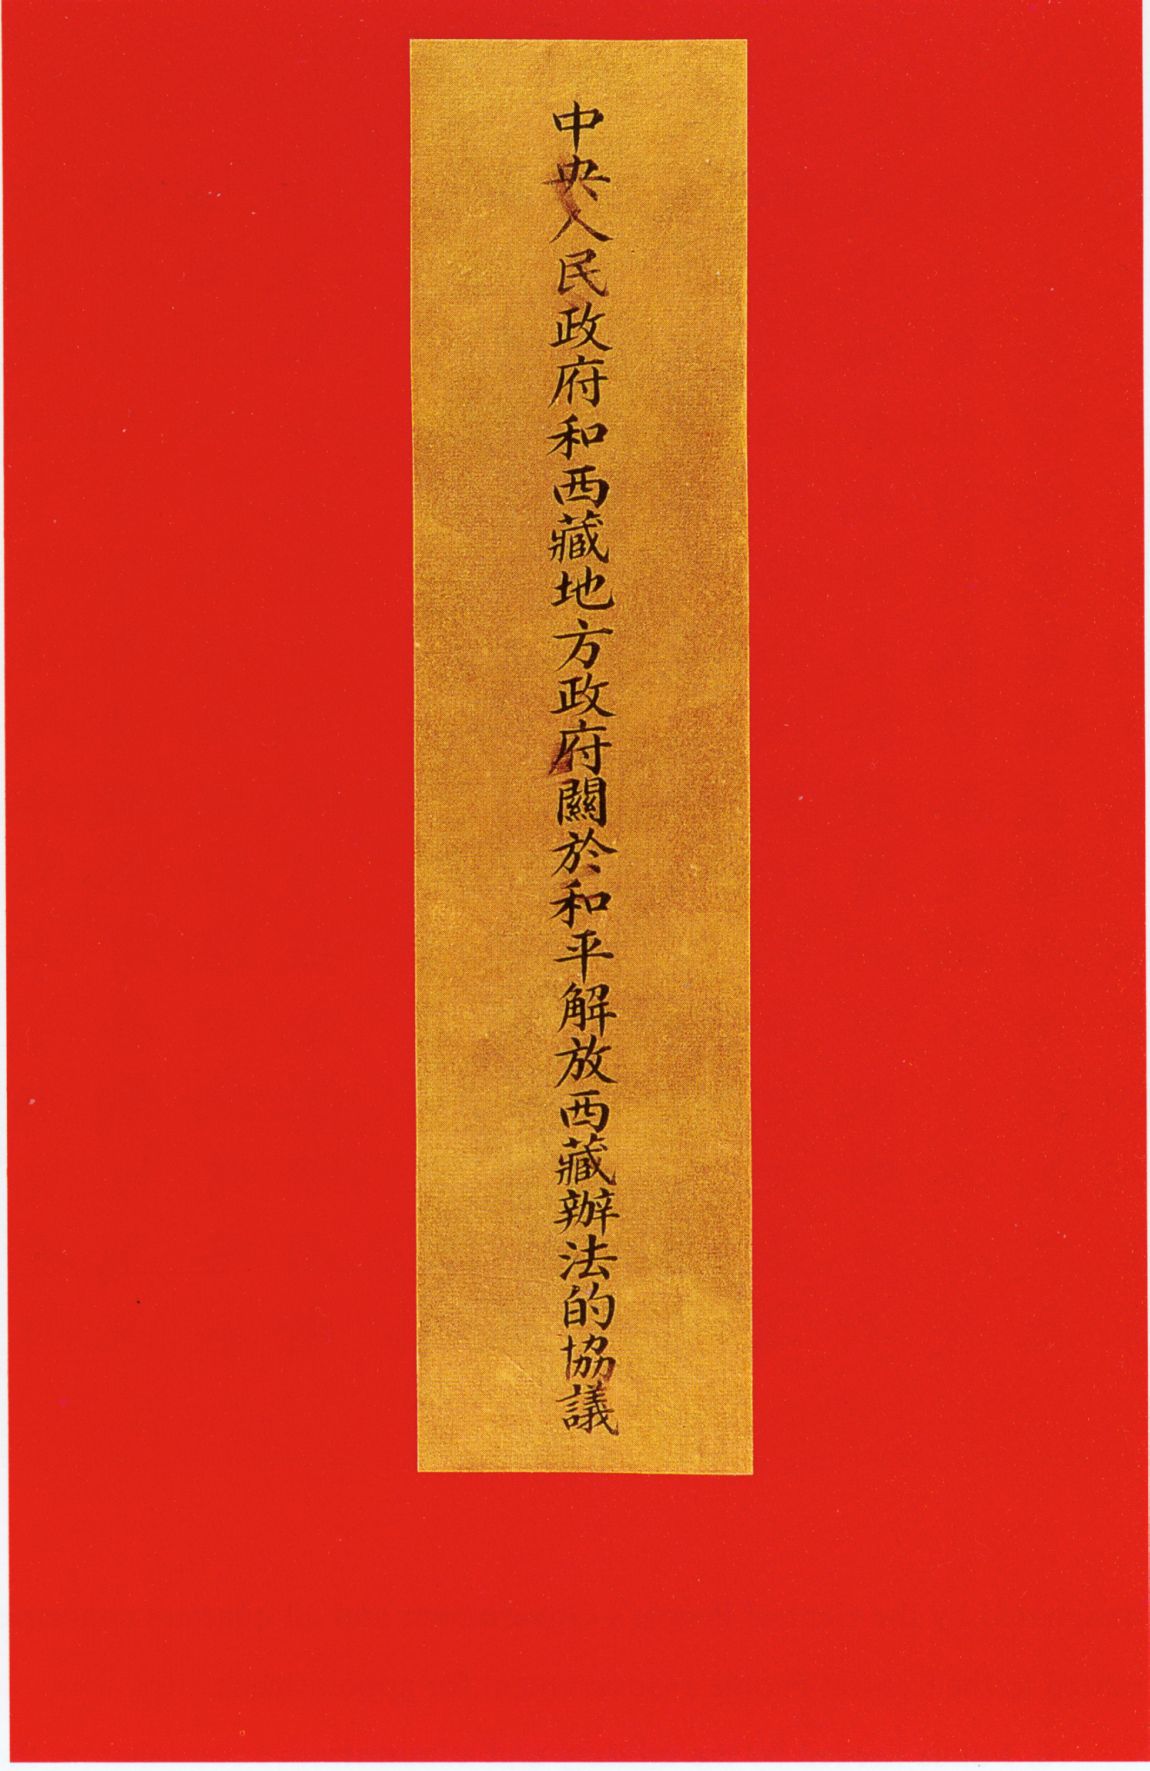 中央人民政府和西藏地方政府關於和平解放西藏辦法的協議